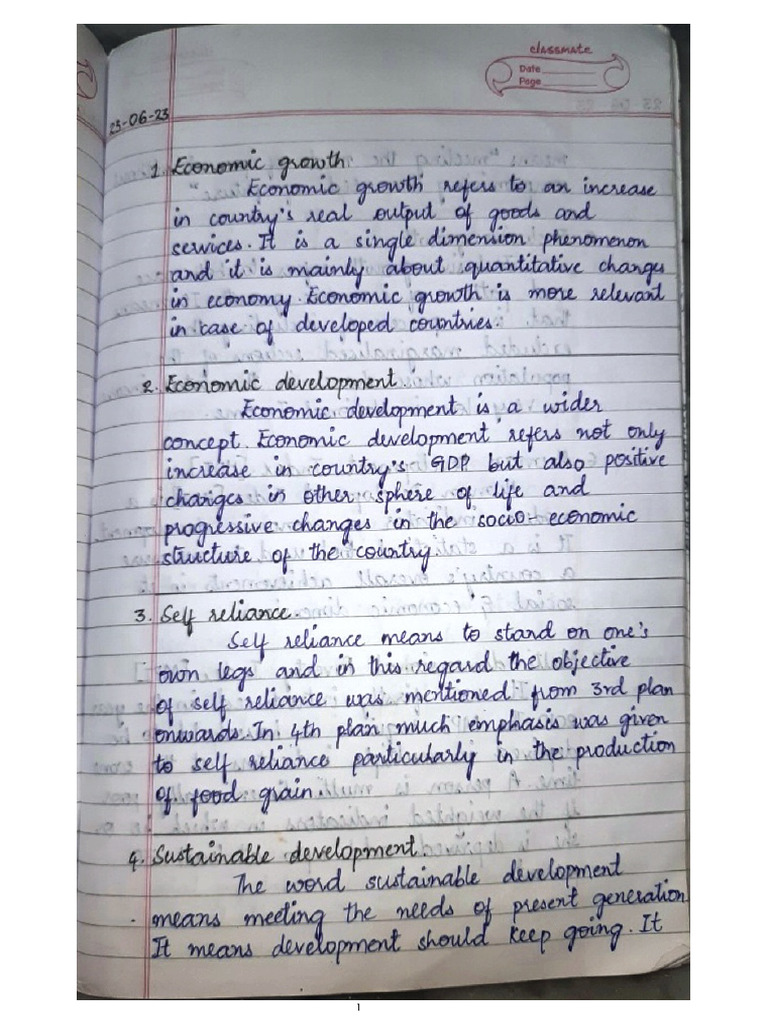 classmate
Date
Page
23-06-23
1. Economic growth
Economic growth refers to an increase
in country's real output of goods and
services. It is a single dimension phenomenon
and it is mainly about quantitative changes
in economy. Economic growth is more relevant
in case of developed countries.
2. Economic development
Economic development is a wider
concept. Economic development refers not only
increase in country's GDP but also positive
changes in other sphere of life and
progressive changes in the socio-economic
structure of the country.
3. Self reliance.
Self reliance means to stand on one's
own legs and in this regard the objective
of self reliance was mentioned from 3rd plan
onwards. In 4th plan much emphasis was given
to self reliance particularly in the production
of food grain.
4. Sustainable development
The word sustainable development
means meeting the needs of present generation
It means development should keep going. It
1